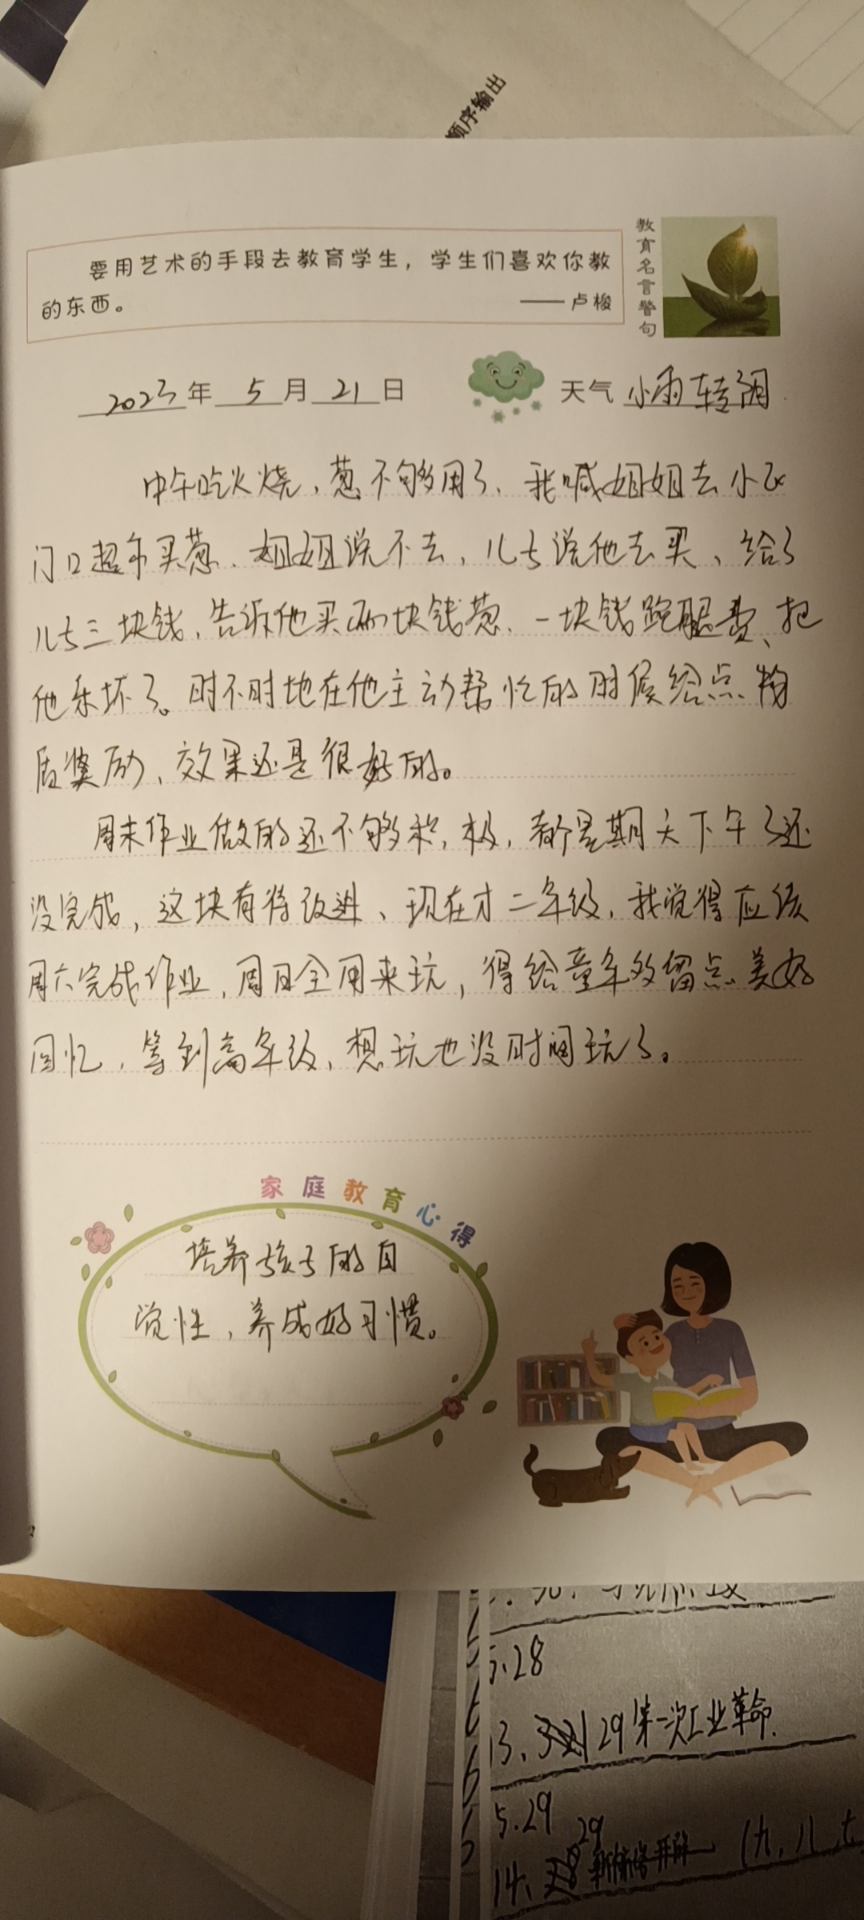 顺序输出
要用艺术的手段去教育学生，学生们喜欢你教
的东西。
——卢梭
教育名言警句
2023年5月21日
天气 小雨转阴
中午吃火烧，葱不够用了、我喊姐姐去小区
门口超市买葱、姐姐说不去，儿子说他去买、给了
儿子三块钱，告诉他买两块钱葱、一块钱跑腿费、把
他乐坏了。时不时地在他主动帮忙的时候给点物
质奖励、效果还是很好的。
周末作业做的还不够积极，都星期天下午了还
没完成，这块有待改进、现在才二年级，我觉得应该
周六完成作业，周日全用来玩，得给童年多留点美好
回忆，等到高年级，想玩也没时间玩了。
家庭教育心得
培养孩子的自
觉性，养成好习惯。
5.28
13、29第一次工业革命.
5.29
29
14、